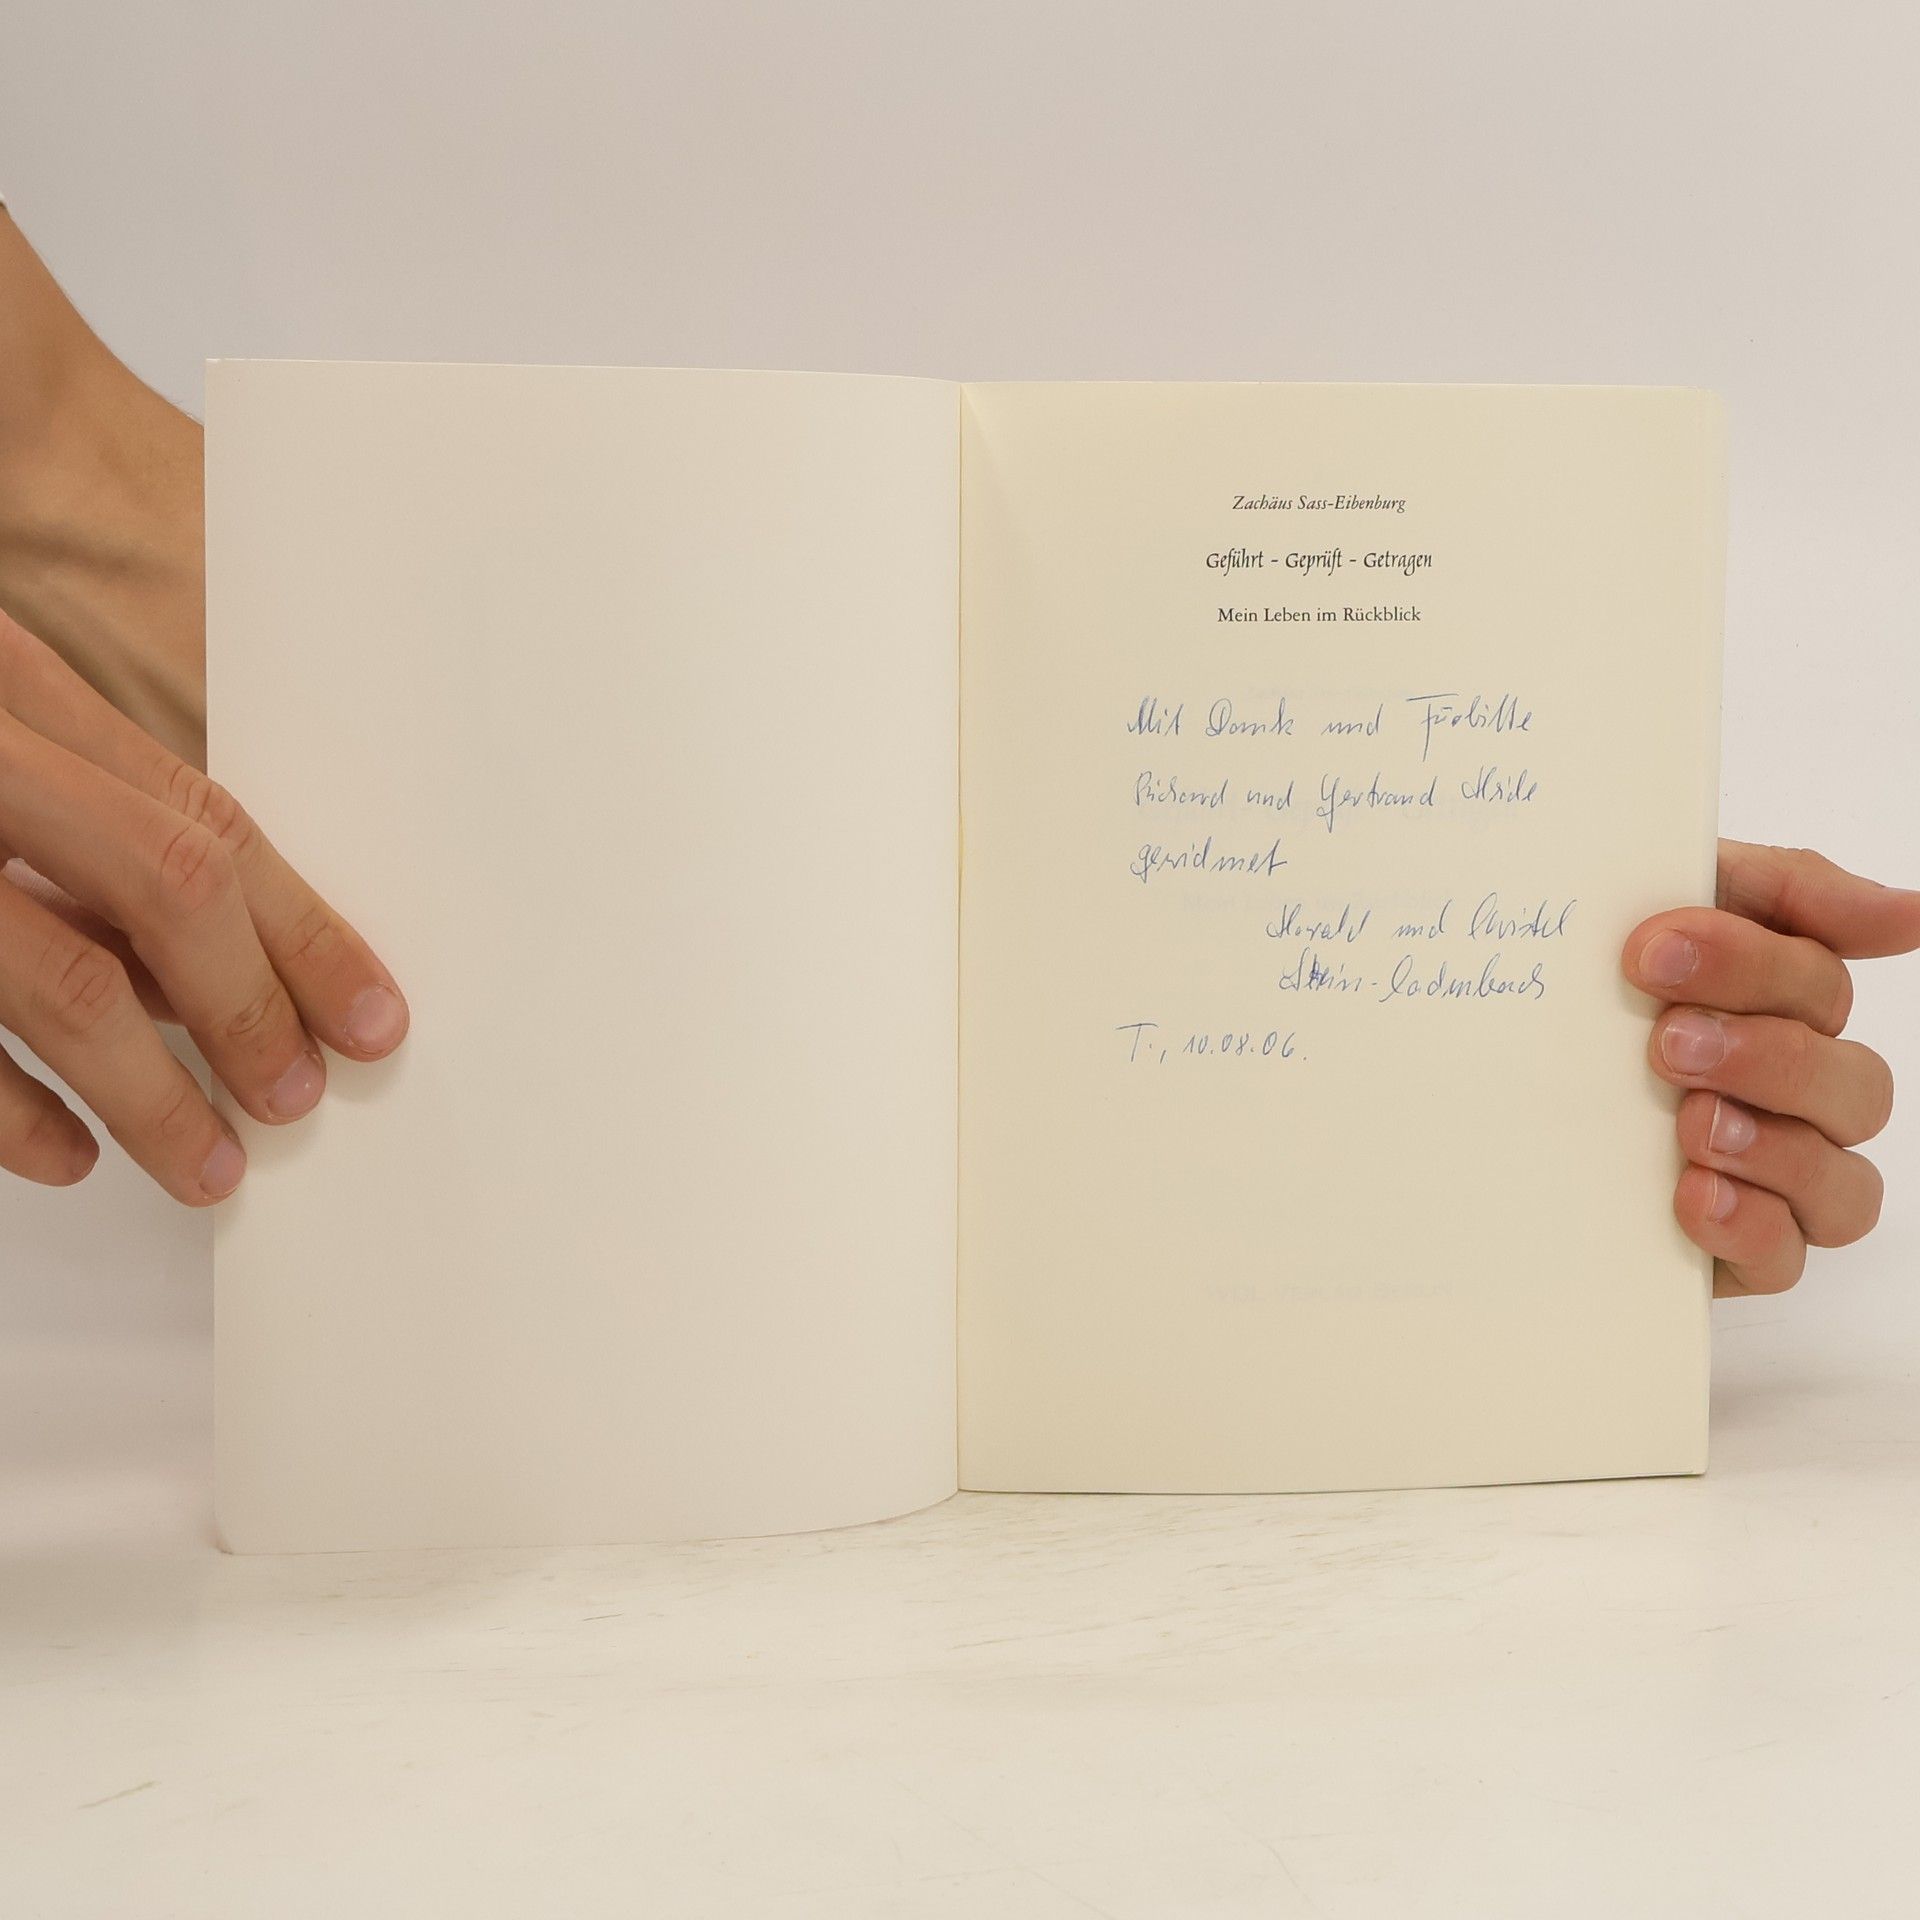 Zachäus Sass-Eibenburg
Geführt - Geprüft - Getragen
Mein Leben im Rückblick
Mit Dank und Fürbitte
Richard und Gertraud Heide
gewidmet
Harald und Christel
Stein-Ladenbach
T., 10.08.06.